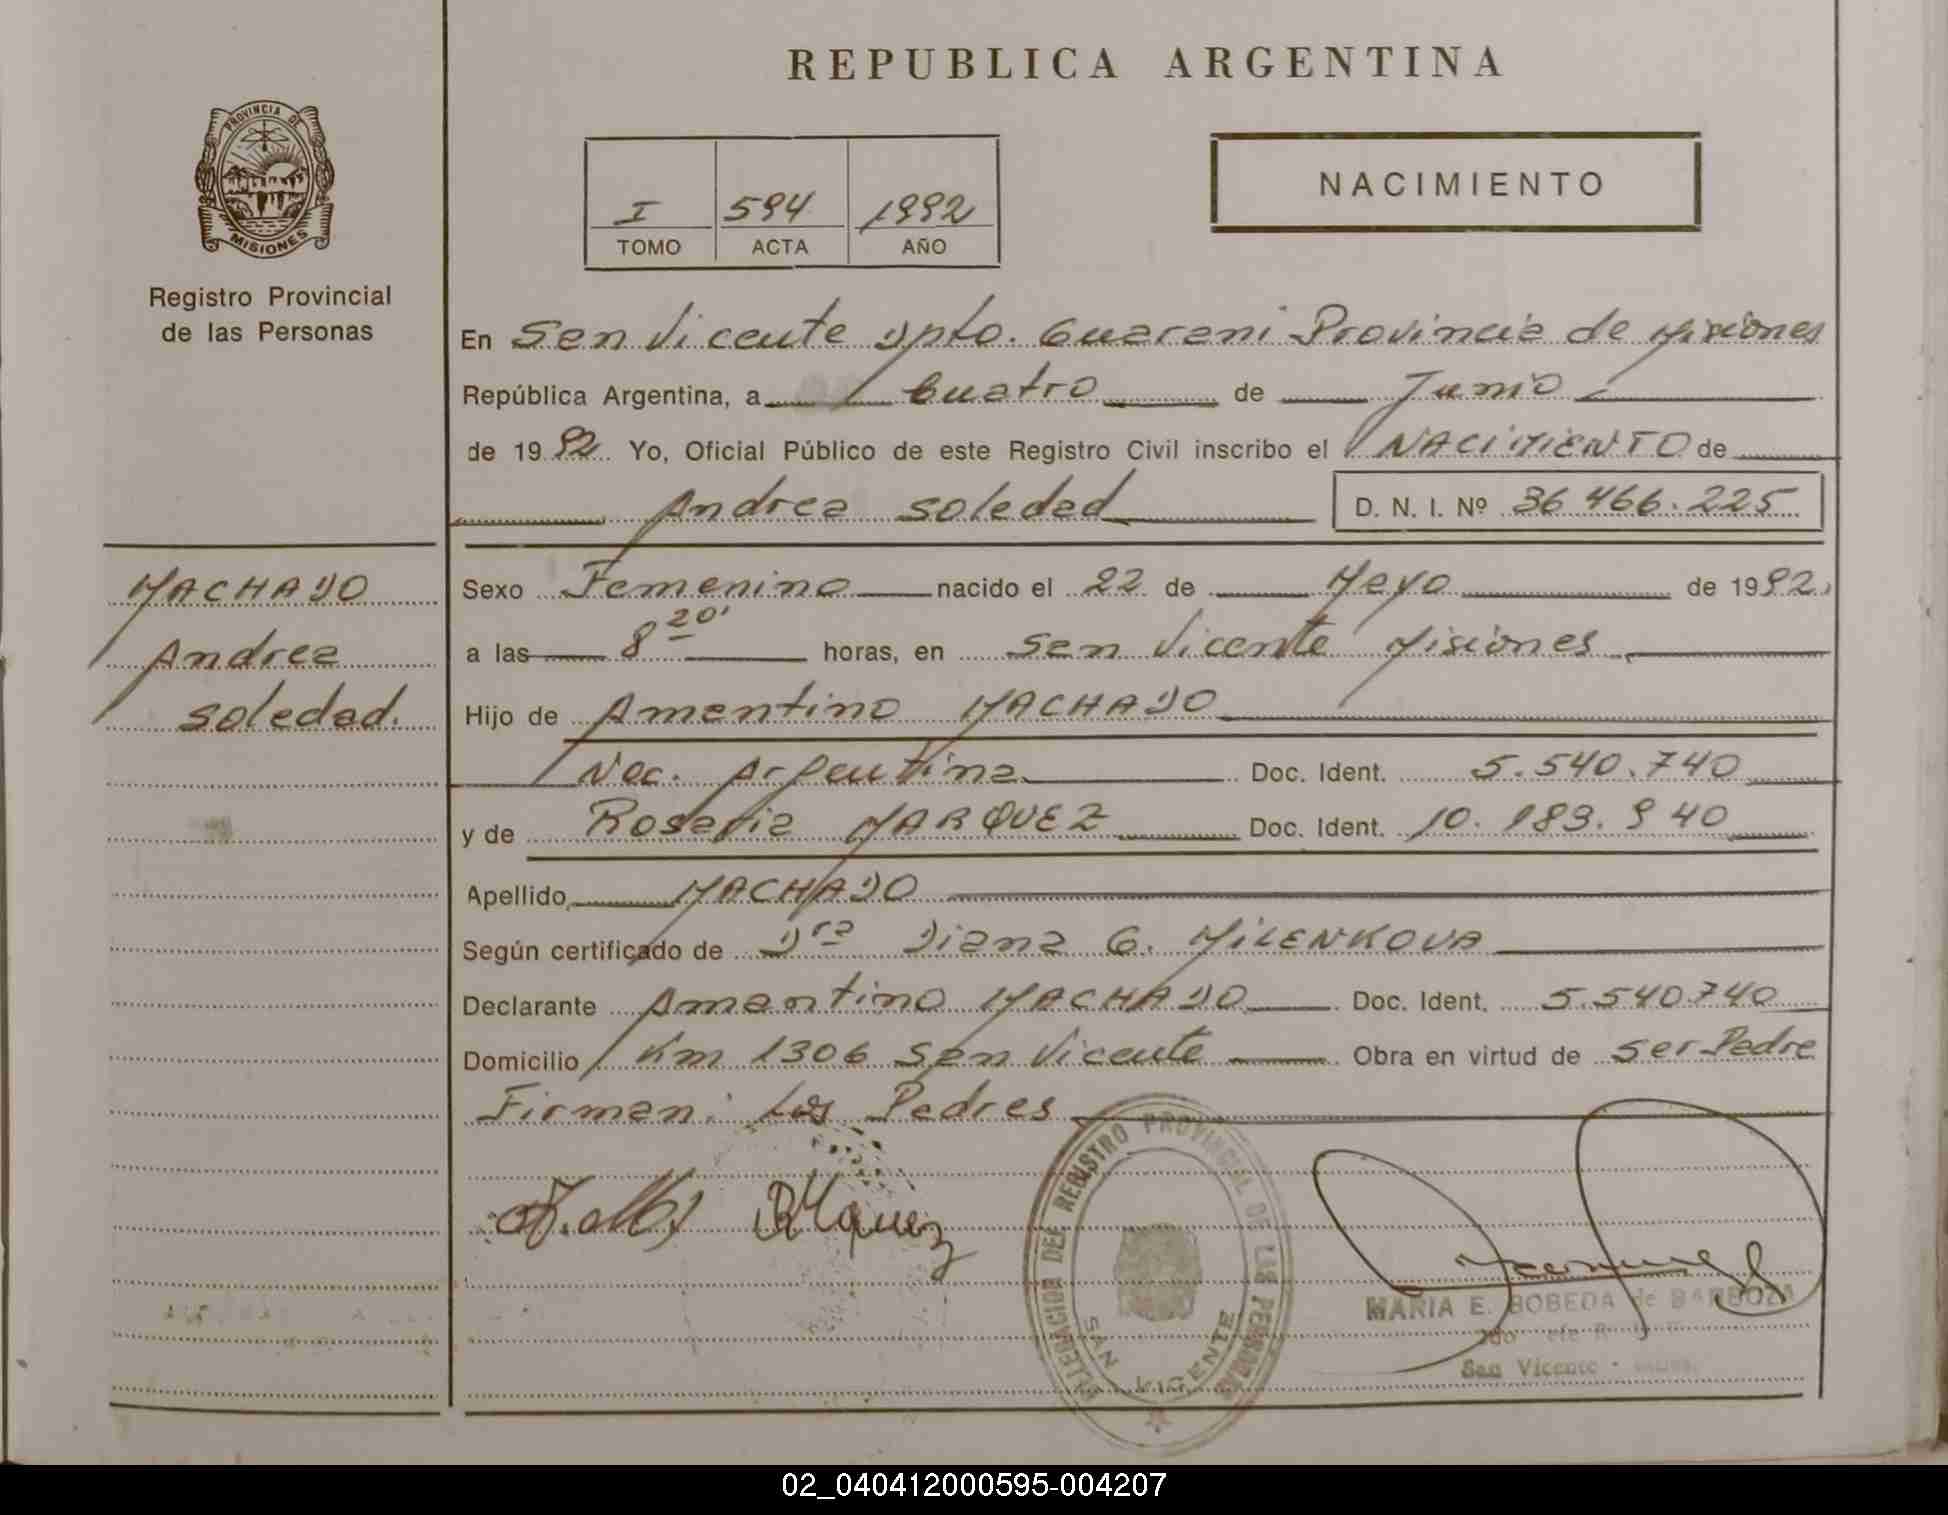 REPUBLICA ARGENTINA
PROVINCIA DE
MISIONES
Registro Provincial
de las Personas
I 594 1992
TOMO ACTA AÑO
NACIMIENTO
En San Vicente Dpto. Guarani Provincia de Misiones
República Argentina, a Cuatro de Junio
de 1992. Yo, Oficial Público de este Registro Civil inscribo el NACIMIENTO de
Andrea Soledad D. N. I. Nº 36 466.225
MACHADO
Andrea
Soledad.
Sexo Femenino nacido el 22 de Mayo de 1992.
a las 8 20' horas, en San Vicente Misiones
Hijo de Amantino MACHADO
Nac. Argentina Doc. Ident. 5.540.740
y de Rosalia MARQUEZ Doc. Ident. 10.183.940
Apellido MACHADO
Según certificado de Dra Diana G. MILENKOVA
Declarante Amantino MACHADO Doc. Ident. 5.540740
Domicilio Km 1306 San Vicente Obra en virtud de Ser Padre
Firman: Los Padres
A. M.
RMquez
DELEGACION DEL REGISTRO PROVINCIAL DE LAS PERSONAS
SAN VICENTE
MARIA E. BOBEDA de BARBOZA
San Vicente
02_040412000595-004207